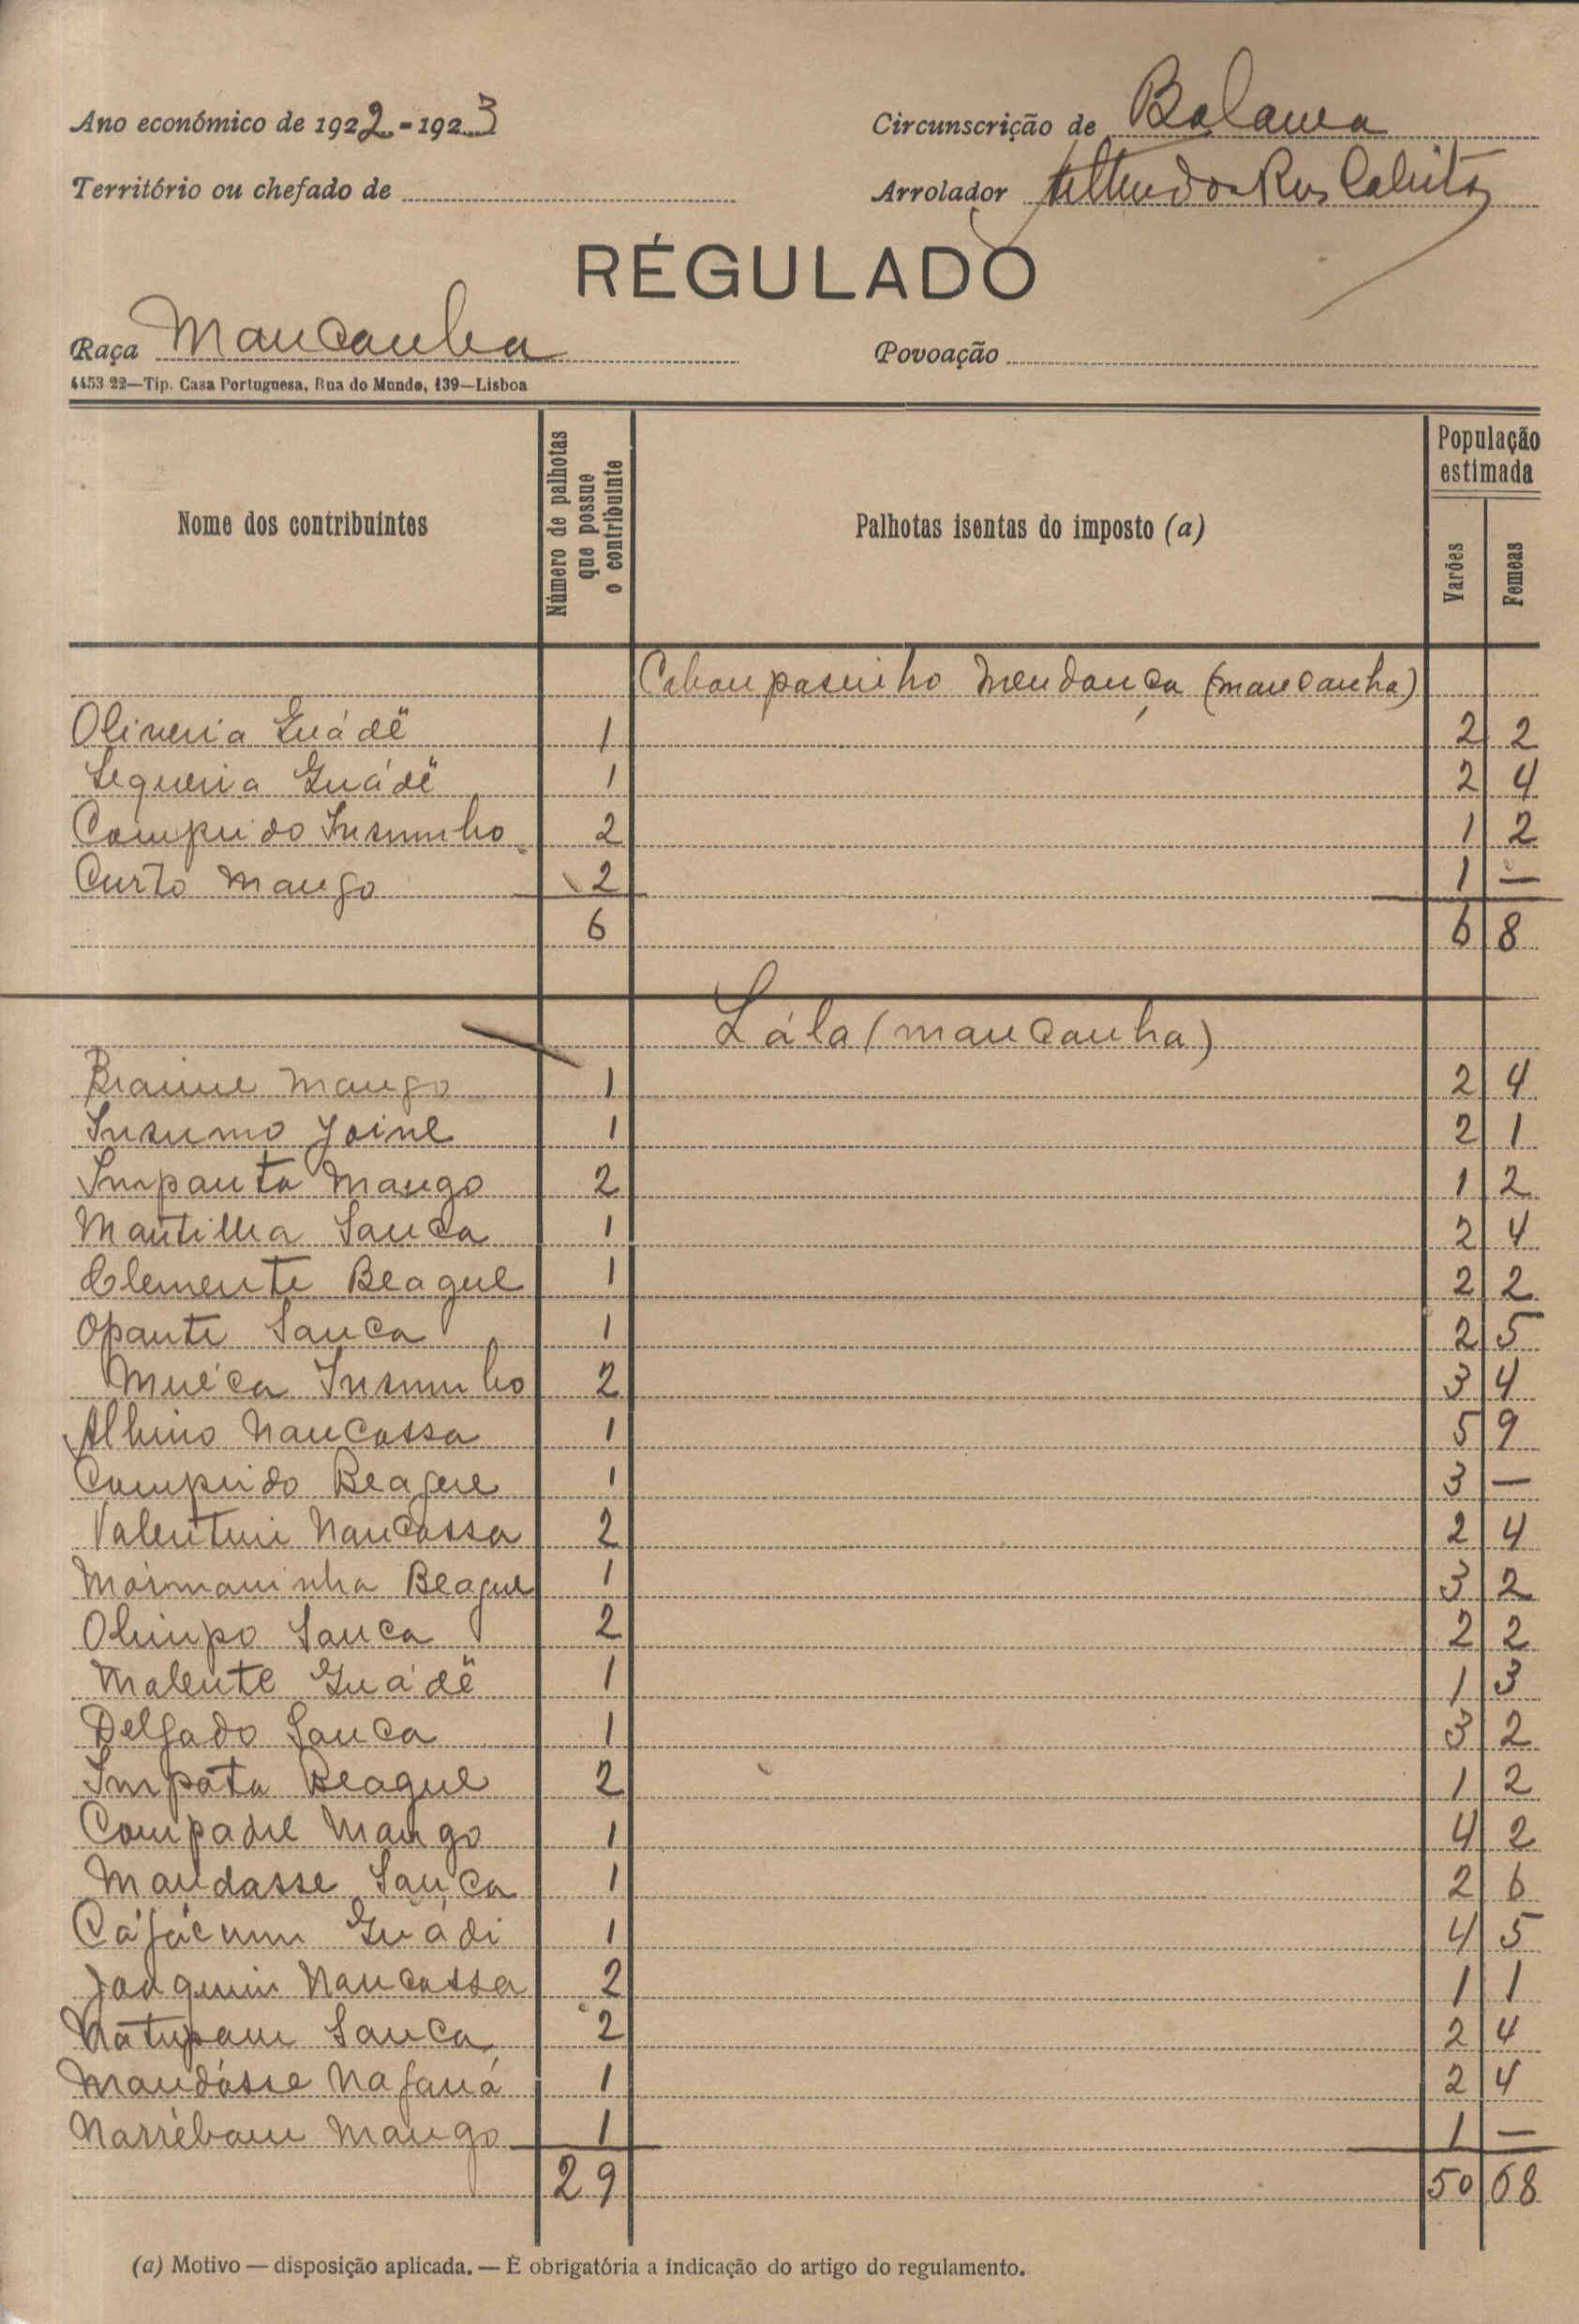 Ano económico de 1922-1923
Circunscrição de Bolama
Território ou chefado de
Arrolador
RÉGULADO
Raça Mancanha
Povoação
4453 22—Tip. Casa Portuguesa, Rua do Mundo, 139—Lisboa
Nome dos contribuintes
Número de palhotas que possue o contribuinte
Palhotas isentas do imposto (a)
População estimada
Varões
Femeas
Mendonça (mancanha)
Oliveira Guádë 1 2 2
Sequeira Guádë 1 2 4
Comprido Insumho 2 1 2
Curto Mango 2 1 —
6 6 8
Lála (mancanha)
Braime Mango 1 2 4
Insumo Joine 1 2 1
Impanta Mango 2 1 2
Mantilha Sanca 1 2 4
Clemente Beague 1 2 2
Opante Sanca 1 2 5
Muéca Insumho 2 3 4
Albino Nancassa 1 5 9
Comprido Beague 1 3 —
Valentim Nancassa 2 2 4
Beague 1 3 2
Olimpo Sanca 2 2 2
Malente Guádë 1 1 3
Delgado Sanca 1 3 2
Impata Beague 2 1 2
Compadre Mango 1 4 2
Mandasse Sanca 1 2 6
Guádi 1 4 5
Joaquim Nancassa 2 1 1
Natupam Sanca 2 2 4
Mandásse Nafaná 1 2 4
Narrébam Mango 1 1 —
29 50 68
(a) Motivo — disposição aplicada. — É obrigatória a indicação do artigo do regulamento.